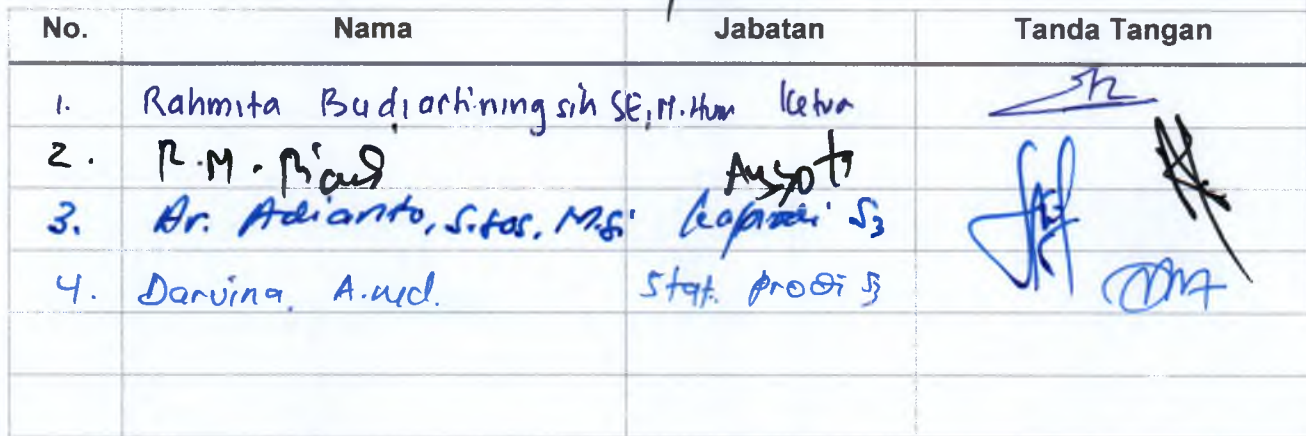 No. Nama Jabatan Tanda Tangan
1. Rahmita Budiartiningsih SE, M.Hum Ketua
2. R.M. Riau Anggota
3. Dr. Adianto, S.Sos, M.Si Kaprodi S3
4. Darvina, A.md. Staf. prodi S3